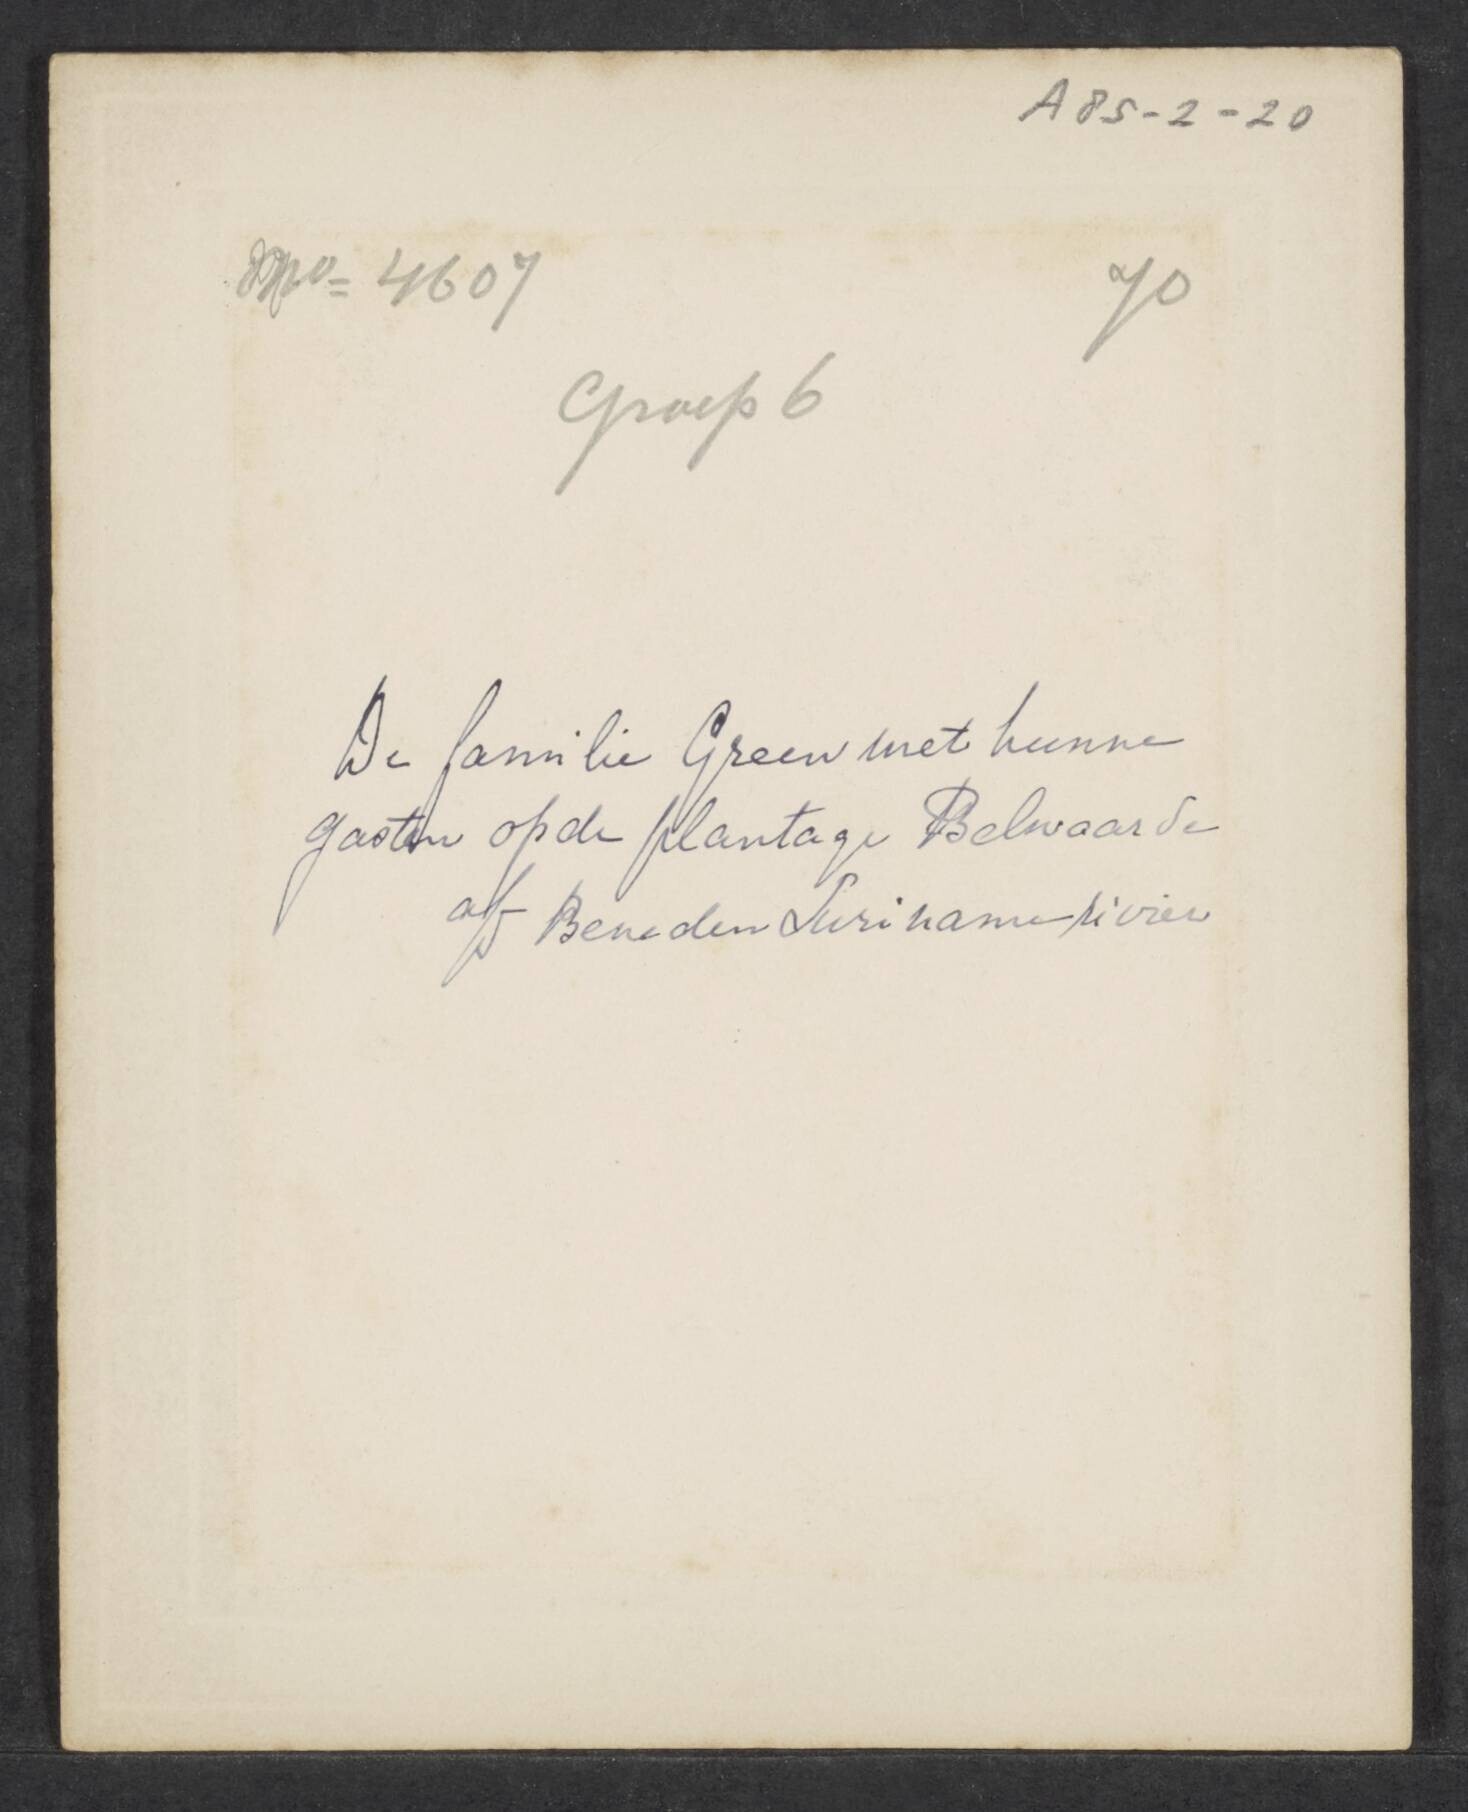 A85-2-20
No= 4607 70
Groep 6
De familie Green met hunne
gasten op de plantage Belwaarde
a/d Beneden Suriname rivier